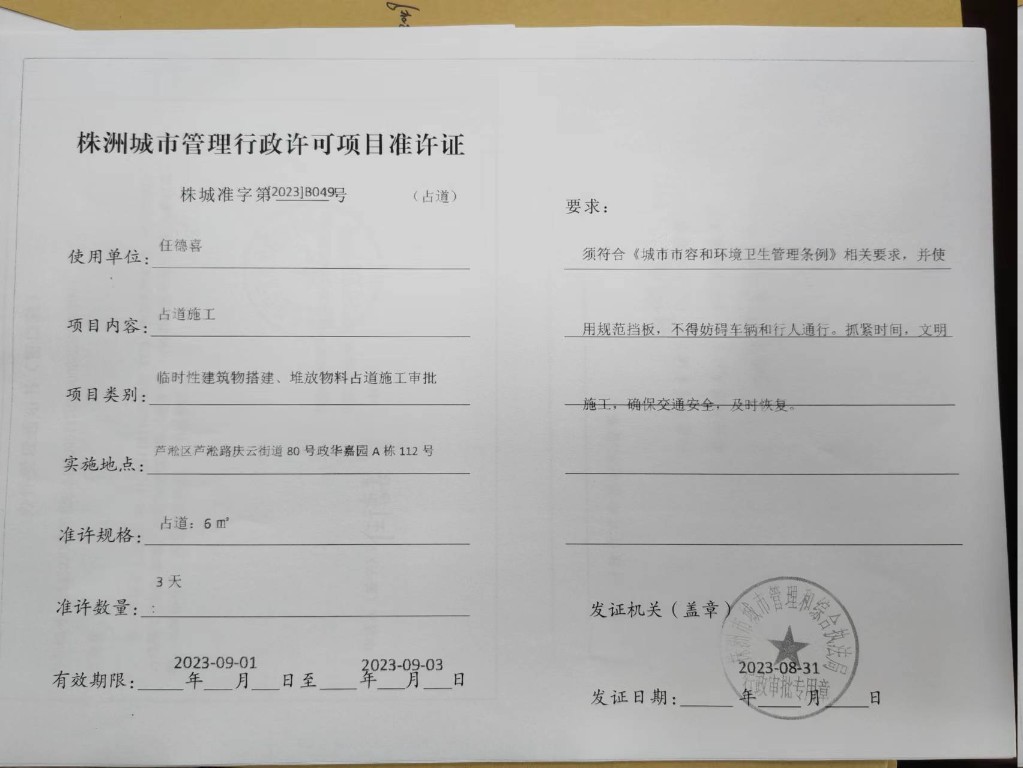 株洲城市管理行政许可项目准许证
株城准字第[2023]B049号 （占道）
使用单位：任德喜
项目内容：占道施工
项目类别：临时性建筑物搭建、堆放物料占道施工审批
实施地点：芦淞区芦淞路庆云街道 80 号政华嘉园 A 栋 112 号
准许规格：占道：6 ㎡
准许数量：3 天
:
有效期限：2023-09-01 年 月 日至 2023-09-03 年 月 日
要求：
须符合《城市市容和环境卫生管理条例》相关要求，并使
用规范挡板，不得妨碍车辆和行人通行。抓紧时间，文明
施工，确保交通安全，及时恢复。
发证机关（盖章）
株洲市城市管理和综合执法局
行政审批专用章
发证日期：2023-08-31 年 月 日